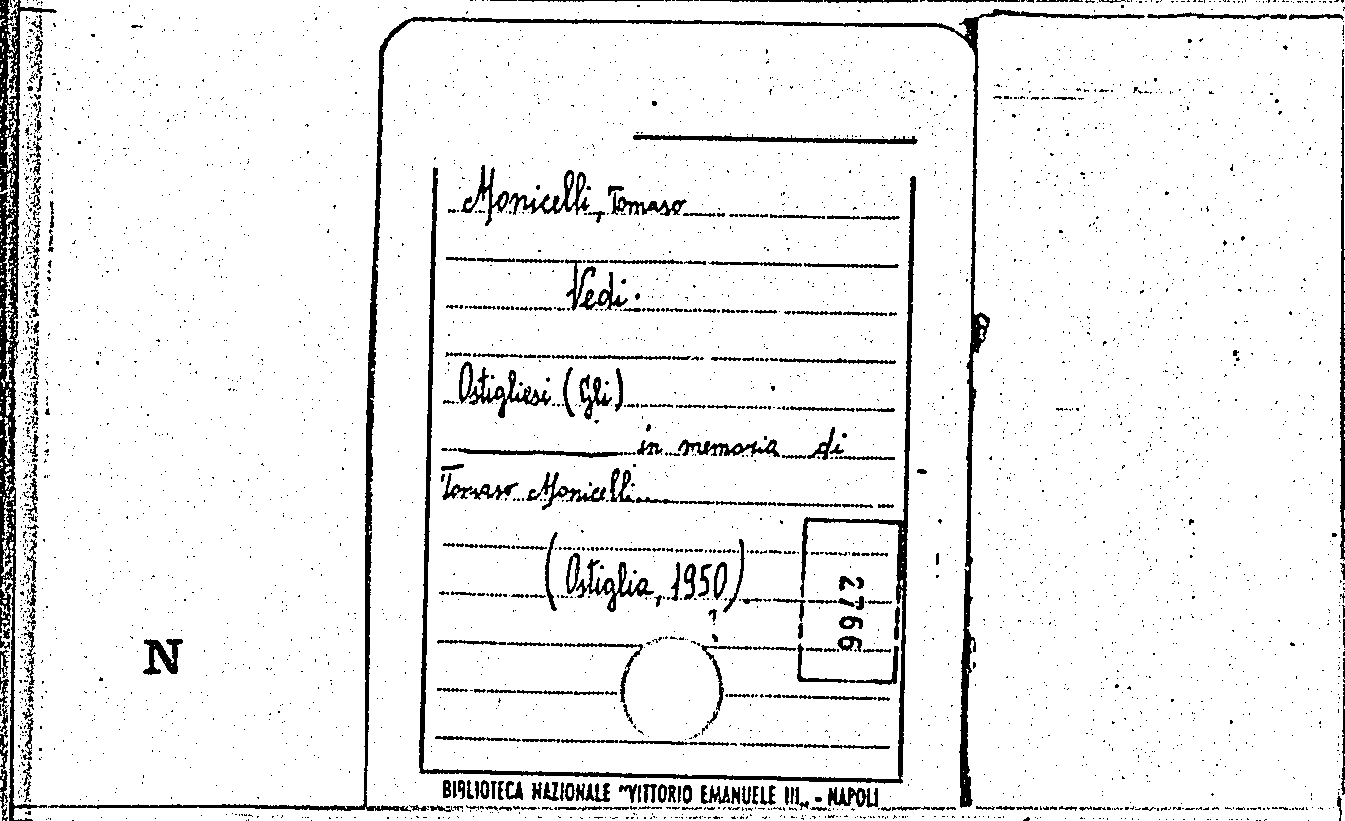 Monicelli, Tomaso
Vedi.
Ostigliesi (Gli)
in memoria di
Tomaso Monicelli....
(Ostiglia, 1950).
?
2766
N
BIBLIOTECA NAZIONALE "VITTORIO EMANUELE III„ - NAPOLI